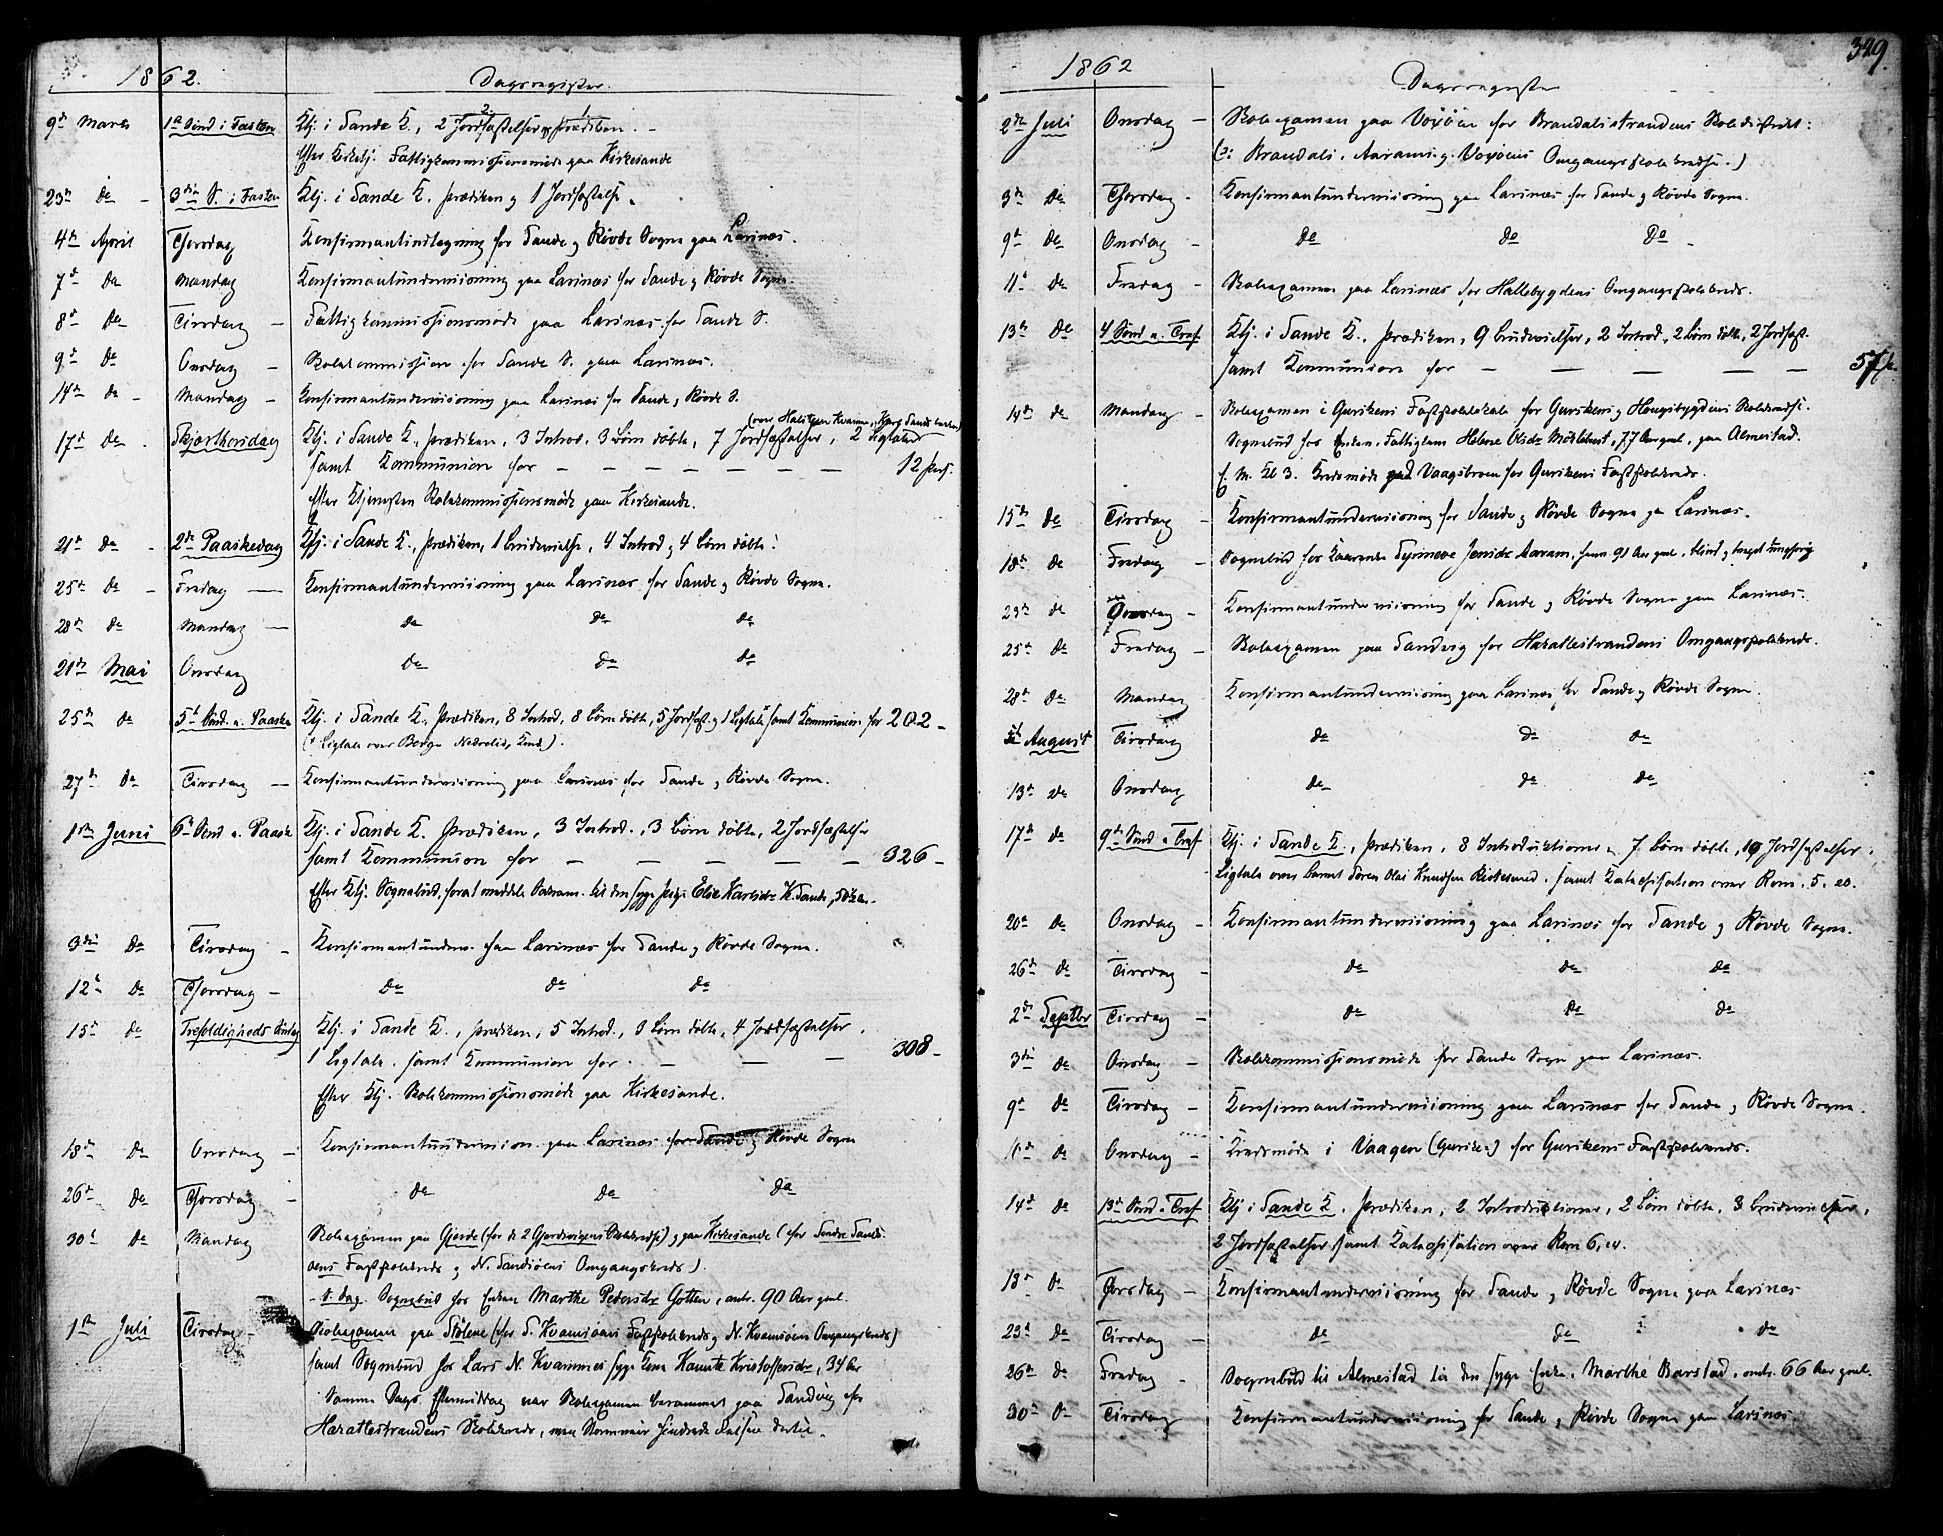 1862.
Dagsregister.
9de Marts 1ste Sønd i Fasten Ktj. i Sande K., 2 Jordfæstelser, Prædiken. -
Efter Kirketj. Fattigkommissionsmøde paa Kirkesande
23de do - 3die S. i Fasten Ktj. i Sande K. Prædiken og 1 Jordfæstelse.
4de April Torsdag Konfirmantindtegning for Sande og Røvde Sogne paa Larsnæs.
7de do Mandag Konfirmantunderviisning paa Larsnæs for Sande og Røvde Sogne.
8de do Tirsdag - Fattigkommissionsmøde paa Larsnæs for Sande S.
9de do Onsdag - Skolekommission for Sande S. paa Larsnæs.
14de do - Mandag - Konfirmantunderviisning paa Larsnæs for Sande og Røvde S.
17de do - Skjærthorsdag Ktj. i Sande K., Prædiken, 3 Introd. 3 Børn døbte, 7 Jordfæstelser, 2 Ligtaler
samt Kommunion for - - - - - - - 12 Pers.
Efter Ktjenesten Skolekommissionsmøde paa Kirkesande.
21de do - 2den Paaskedag Ktj. i Sande K., Prædiken, 1 Brudevielse, 4 Introd og 4 Børn døbte.
25de do - Fredag - Konfirmantunderviisning paa Larsnæs for Sande og Røvde Sogne.
28de do Mandag - do do do
21de Mai Onsdag do do do
25de do 5te Sønd. e. Paaske Ktj. i Sande K., Prædiken, 8 Introd, 8 Børn døbte, 5 Jordf. og 1 Ligtale samt Kommunion for 202 -
27de do Tirsdag - Konfirmantunderviisning paa Larsnæs for Sande og Røvde Sogne.
1ste Juni 6te Sønd e. Paaske Ktj. i Sande K. Prædiken, 3 Introd., 3 Børn døbte, 2 Jordfæstelser
samt Kommunion for - - - - - 326 -
Efter Ktj. Sognebud, for at meddele Sakram. til den syge Pige Elise Karlsdr K. Sande,
3die do Tirsdag - Konfirmantunderv. paa Larsnæs for Sande og Røvde Sogne.
12te do Torsdag - do do do
15de do Trefoldigheds Søndag Ktj. i Sande K., Prædiken, 5 Introd., 3 Børn døbte, 4 Jordfæstelser,
1 Ligtale. samt Kommunion for - - - 308 -
Efter Ktj. Skolekommissionsmøde paa Kirkesande.
18de do Onsdag - Konfirmantundervision. paa Larsnæs for Sande og Røvde Sogne
26de do Torsdag - do do do
30te do Mandag Skoleexamen paa Gjerde (for de 2 Gjerdsvigens Skolekredse) og paa Kirkesande (for Søndre Sands-
øens Fastskolekreds og N. Sandsøens Omgangskreds).
- s. Dag. Sognebud for Enken Marthe Pedersdr Gotten, omtr. 90 Aar gml.
1ste Juli Tirsdag - Skoleexamen paa Stølene (for S. Kvamsøens Fastskolekreds og N. Kvamsøens Omgangskreds)
samt Sognebud for Lars N. Kvamme's syge Kone Hanute Kristoffersdr, 34 Aar
Samme Dags Eftermiddag var Skoleexamen berammet paa Sandvig for
Haratlestrandens Skolekreds, men Stormveir hindrede Reisen dertil.
1862
Dagsregister
349.
2den Juli Onsdag - Skoleexamen paa Voxøen for Brandalsstrandens Skoledistrikt:
(ɔ: Brandals, Aarams og Voxøens Omgangsskolekredse.)
3die do Torsdag - Konfirmantunderviisning paa Larsnæs for Sande og Røvde Sogne.
9de do Onsdag - do do do -
11te do Fredag - Skoleexamen paa Larsnæs for Hallebygdens Omgangsskolekreds.
13de do 4 Sønd e. Tref. Ktj. i Sande K., Prædiken, 9 Brudevielser, 2 Introd., 2 Børn døbte, 2 Jordfæst.
samt Kommunion for - - - - - 57
14de do Mandag - Skoleexamen i Gurskens Fastskolelokale for Gurskens og Haugsbygdens Skolekredse.
Sognebud for Enken, Fattiglem Helene Olsdr Møklebust, 77 Aar gml., paa Almestad.
E. M. Kl 3. Kredsmøde paa Vaagsbroen for Gurskens Fastskolekreds.
15de do Tirsdag - Konfirmantunderviisning for Sande og Røvde Sogne paa Larsnæs.
18de do Fredag - Sognebud for Synneve Jensdr Aaram, som 91 Aar gml., blind og meget tunghørig
23de do Onsdag - Konfirmantunderviisning for Sande og Røvde Sogne paa Larsnæs.
25de do Fredag - Skoleexamen paa Sandvig for Haratlestrandens Omgangsskolekreds.
28de do Mandag Konfirmantunderviisning paa Larsnæs for Sande og Røvde Sogne.
August Tirsdag do do do
13de do Onsdag do do do
17de do 9de Sønd e Tref Ktj. i Sande K., Prædiken, 8 Introduktioner, 7 Børn døbte, 19 Jordfæstelser,
Ligtale over Barnet Søren Olai Knudsen samt Katechisation over Rom. 5.
20de do Onsdag - Konfirmantunderviisning paa Larsnæs for Sande og Røvde Sogne.
26de do Tirsdag - do do do
2den Septbr Tirsdag - do do do
3die do Onsdag - Skolekommissionsmøde for Sande Sogn paa Larsnæs.
9de do Tirsdag - Konfirmantunderviisning paa Larsnæs for Sande og Røvde Sogne.
10de do Onsdag - Kredsmøde i Vaagen (Gursken) for Gurskens Fastskolekreds.
14de do 13de Sønd e Tref Ktj i Sande K, Prædiken, 2 Introduktioner, 2 Børn døbte, 3 Brudevielser,
2 Jordfæstelser samt Katechisation over Rom 6,
18de do Torsdag - Konfirmantunderviisning for Sande og Røvde Sogne paa Larsnæs
23de do Tirsdag - do do do
26de do Fredag - Sognebud til Almestad til den syge Enke, Marthe Barstad, omtr. 66 Aar gml.
30te do Tirsdag Konfirmantunderviisning for Sande og Røvde Sogne paa Larsnæs